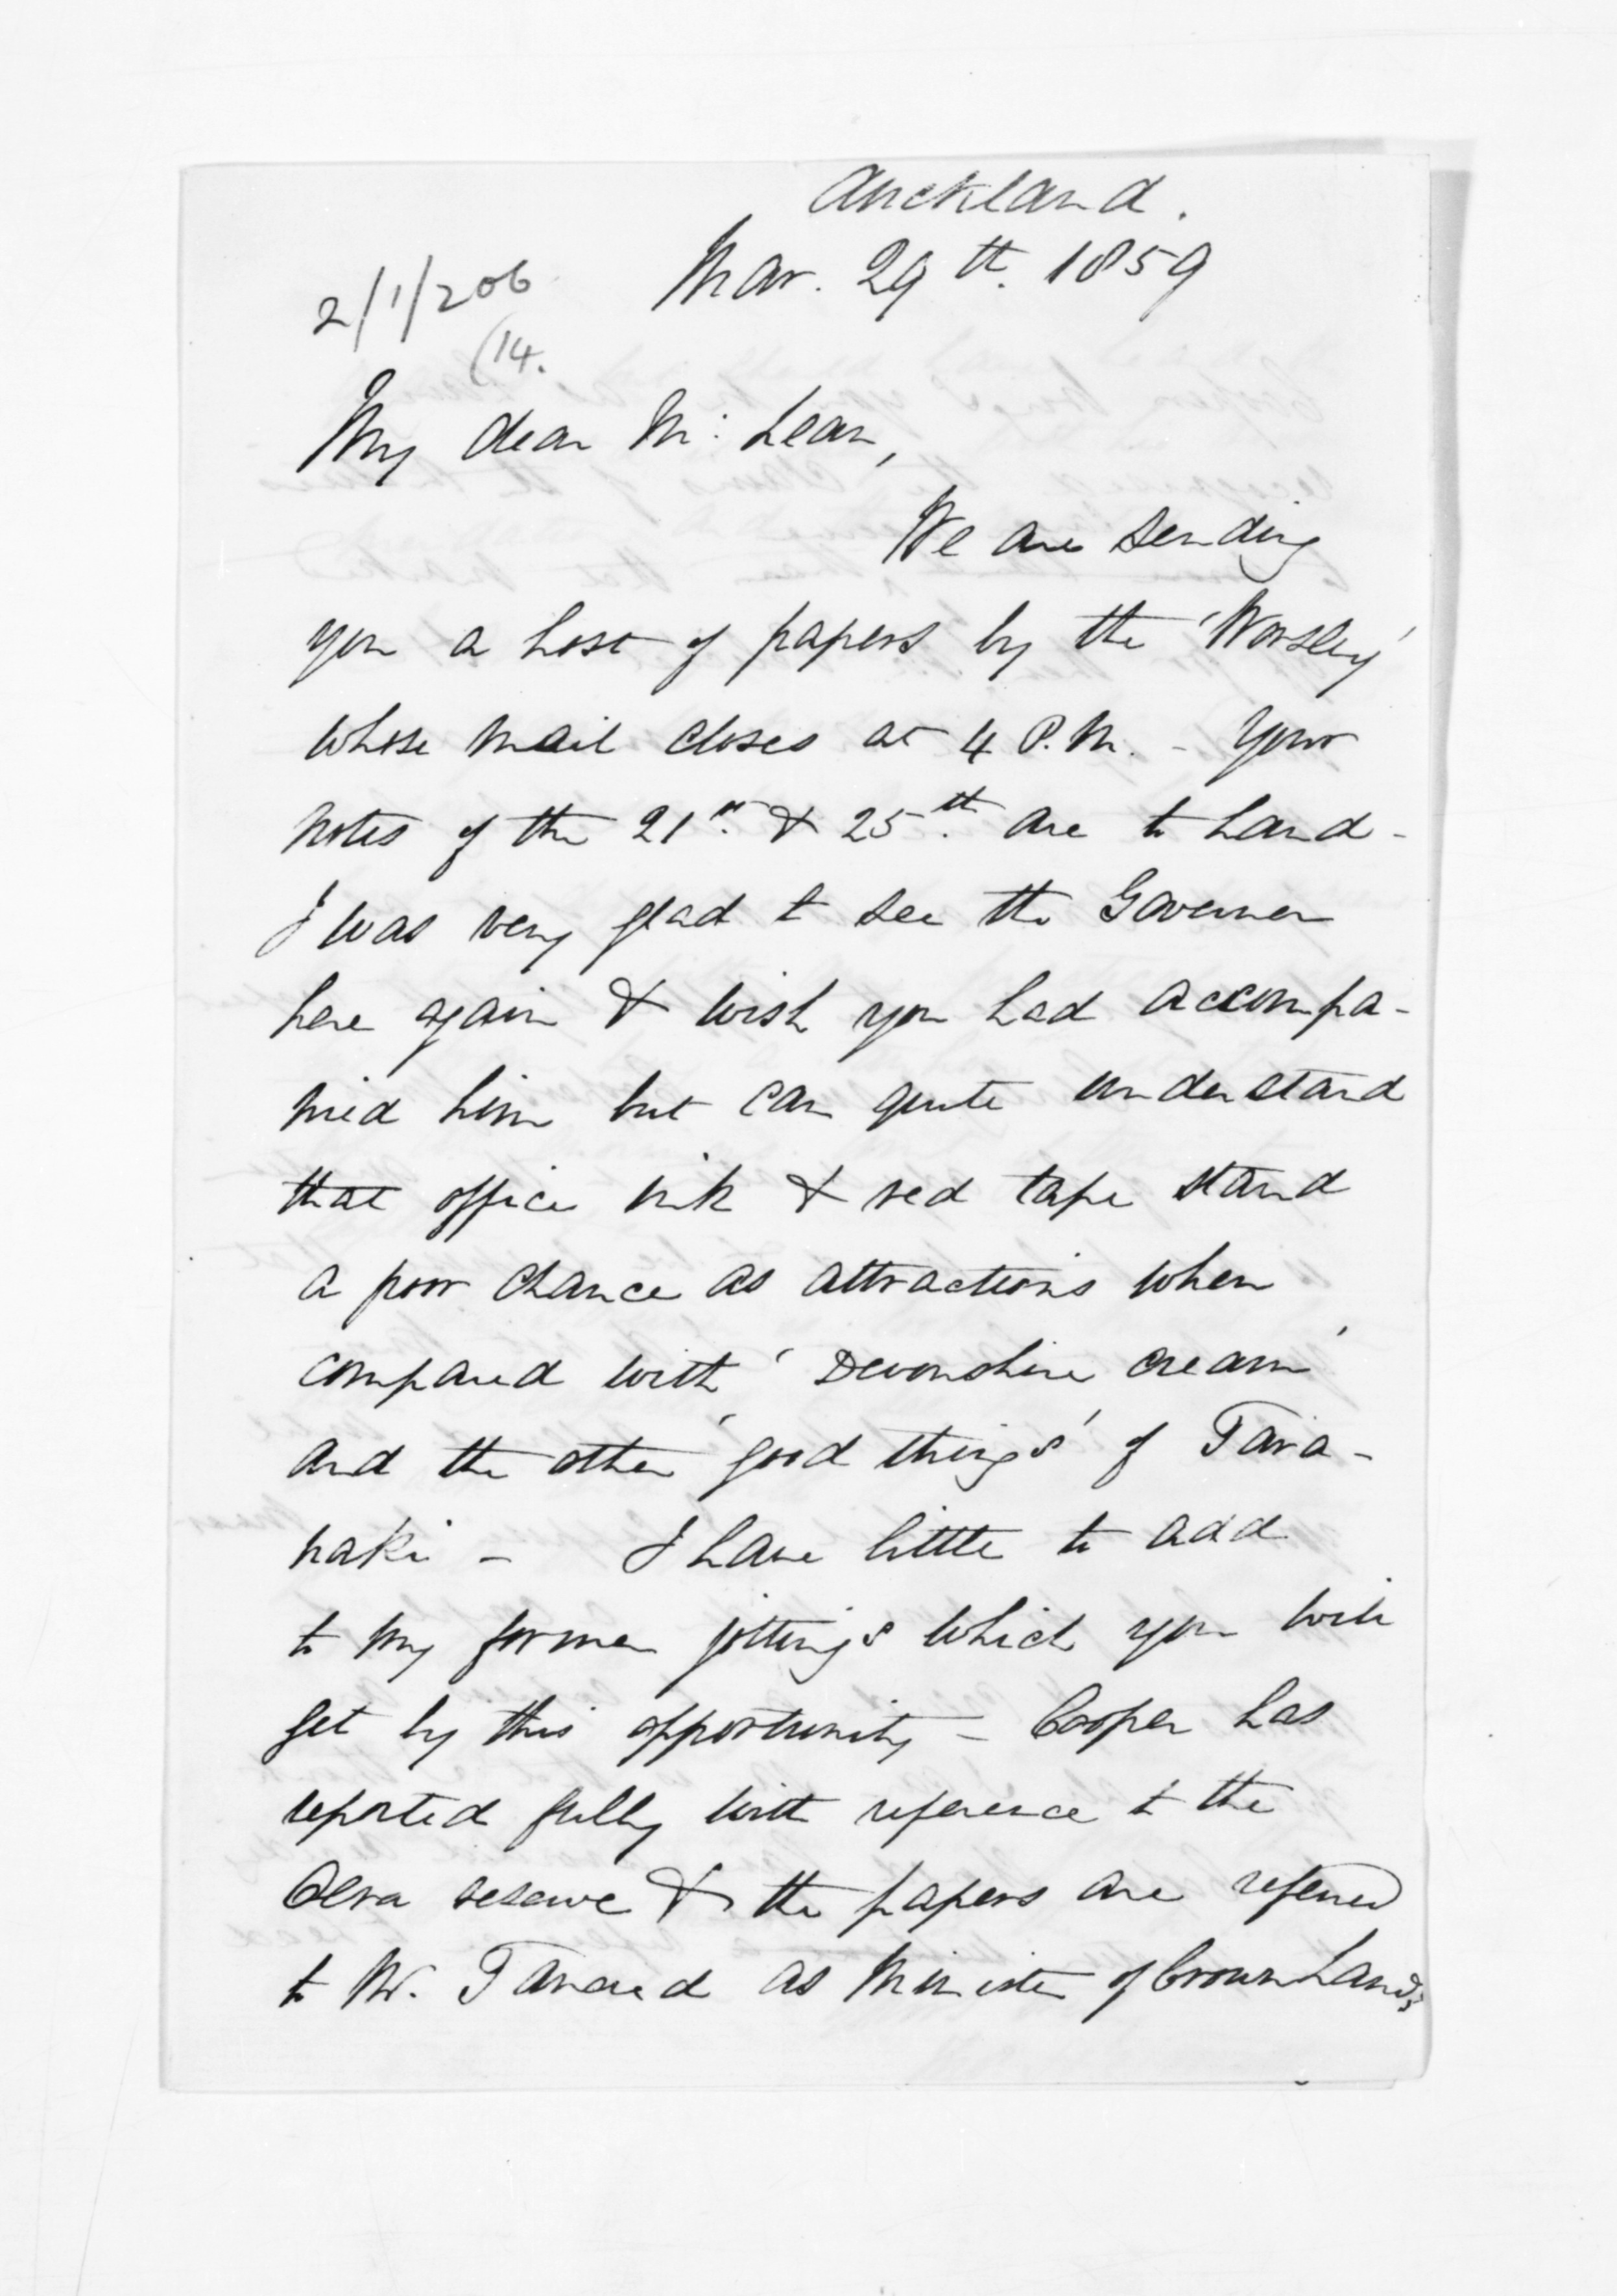 Auckland.
Mar. 29th. 1859
2/1/206
(14.
My dear Mc: Lean,
We are sending
you a host of papers by the 'Worsley'
whose mail closes at 4 P.M. - Your
notes of the 21st. & 25th. are to hand -
I was very glad to see the Governor
here again & wish you had accompa-
nied him but can quite understand
that office ink & red tape stand
a poor chance as attractions when
compared with 'Devonshire cream'
and the other 'good things' of Tara-
naki - I have little to add
to my former jottings which you will
get by this opportunity - Cooper has
reported fully with reference to the
reserve & the papers are referred
to Mr. Tancred as Minister of Crown Lands